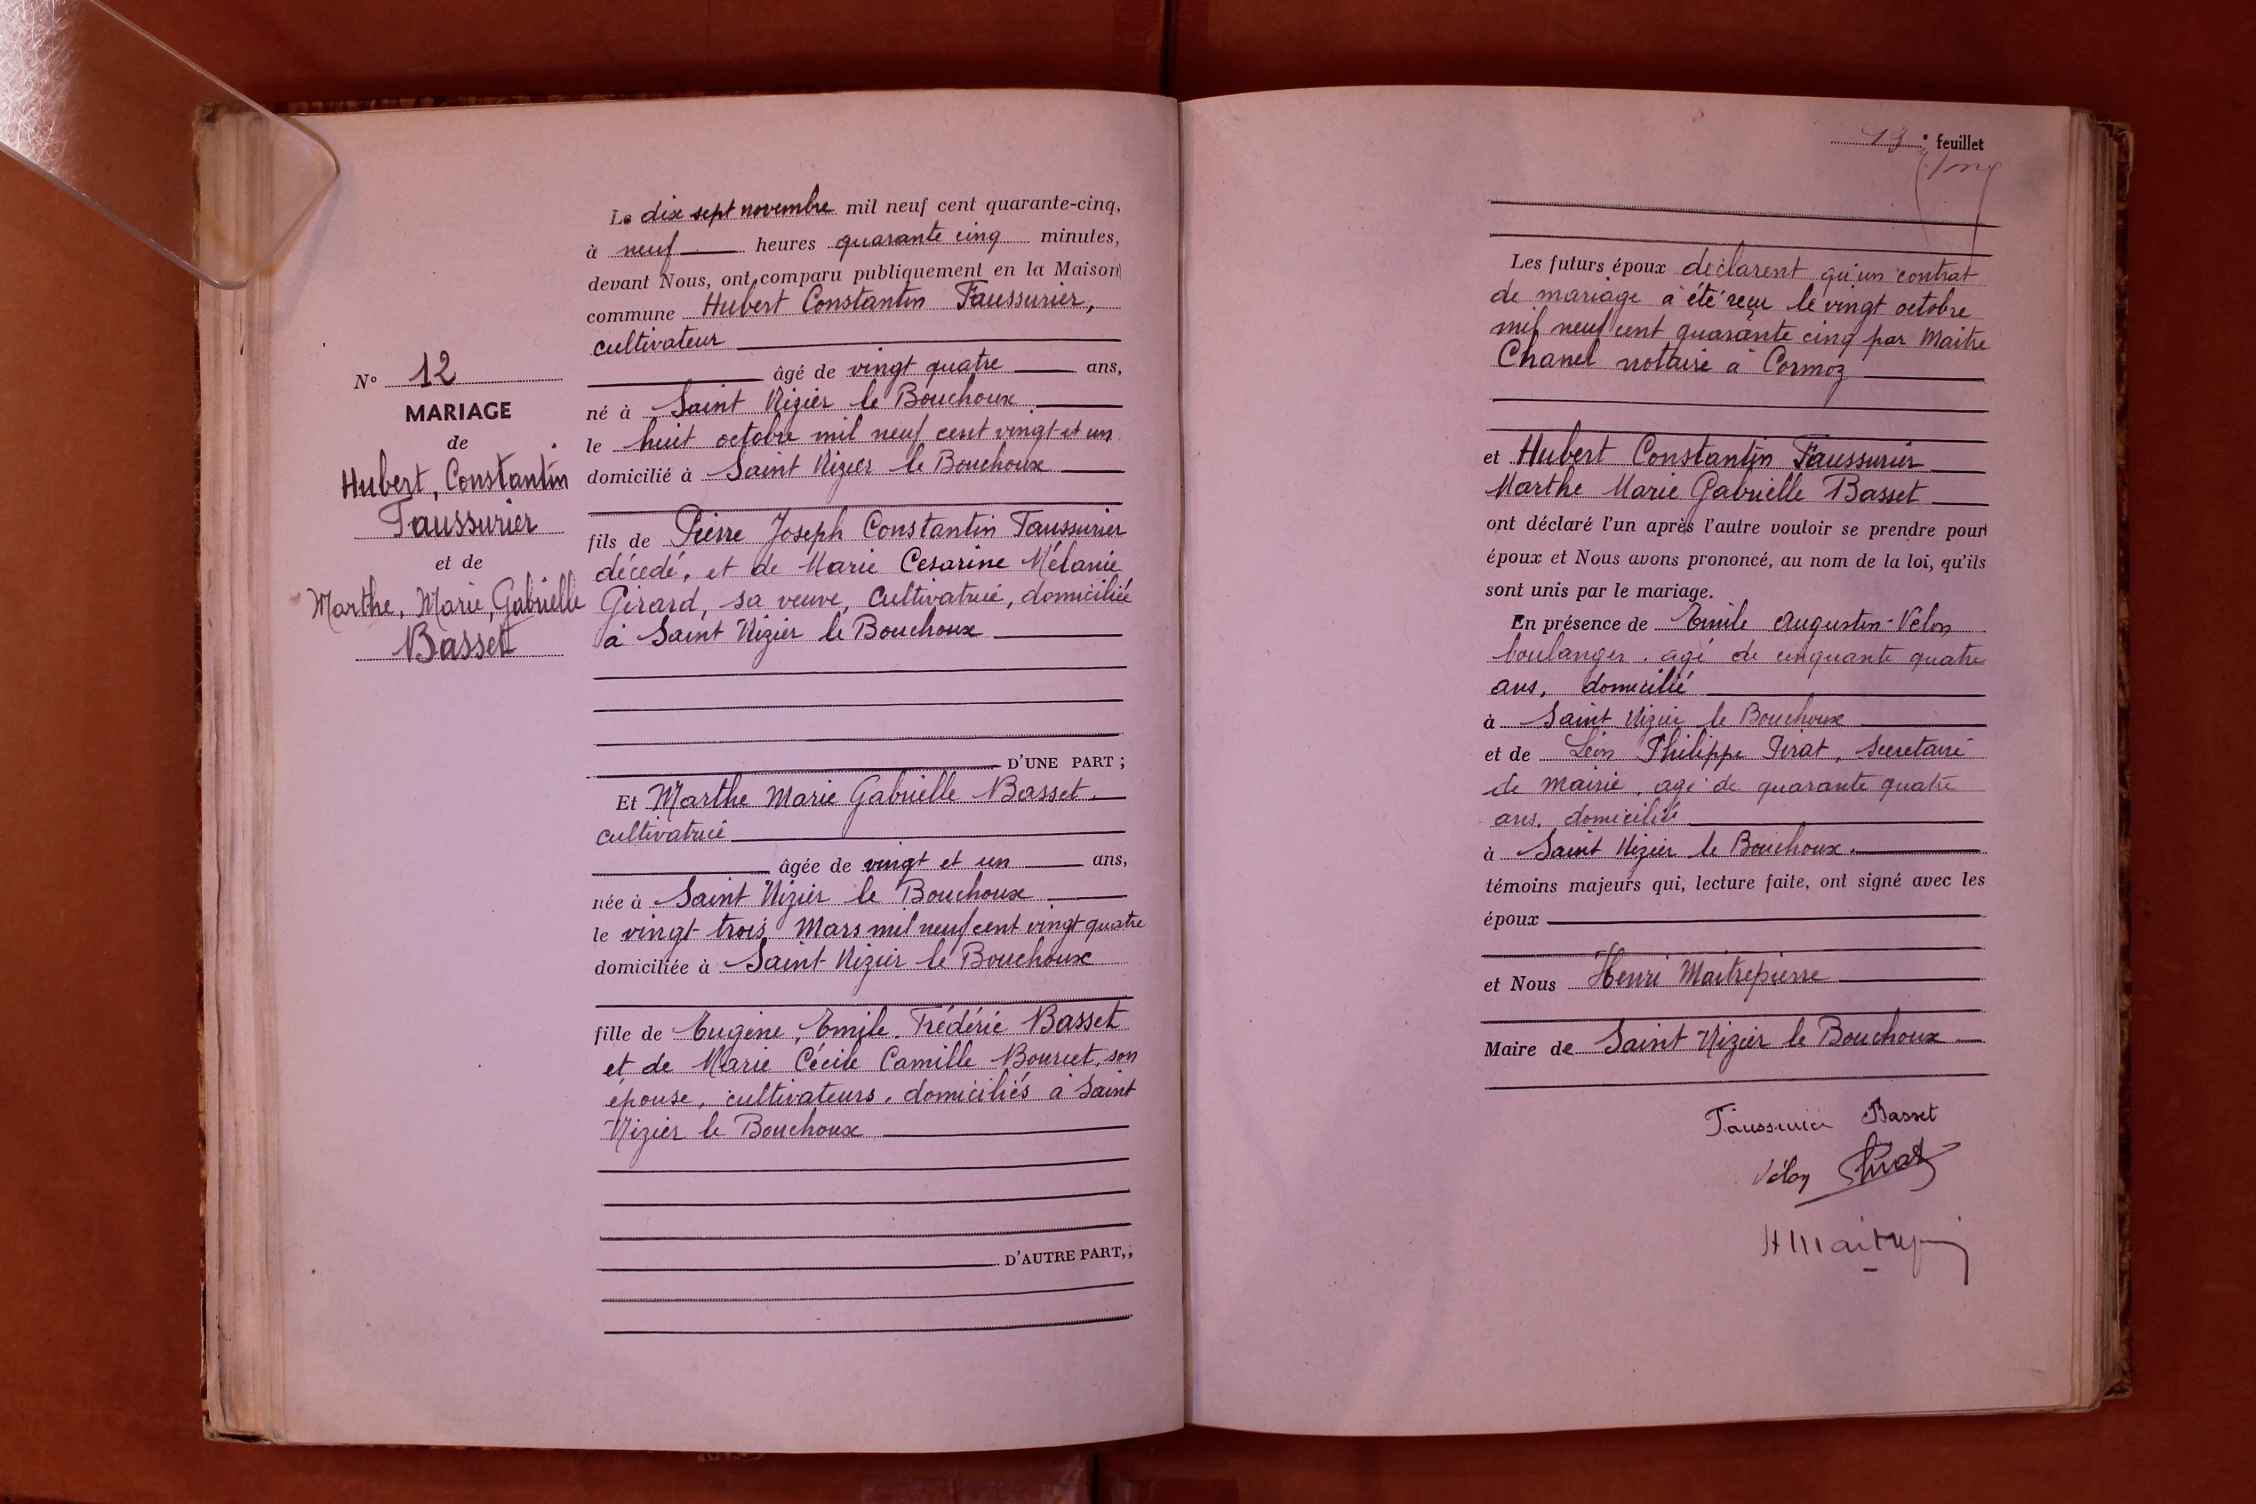 Le dix sept novembre mil neuf cent quarante-cinq,
à neuf heures quarante cinq minutes,
devant Nous, ont comparu publiquement en la Maison
commune Hubert Constantin Faussurier,
cultivateur
âgé de vingt quatre ans,
né à Saint Nizier le Bouchoux
le huit octobre mil neuf cent vingt et un
domicilié à Saint Nizier le Bouchoux
fils de Pierre Joseph Constantin Faussurier
décedé, et de Marie Cesarine Mélanie
Girard, sa veuve, cultivatrice, domiciliée
à Saint Nizier le Bouchoux
D'UNE PART ;
Et Marthe Marie Gabrielle Basset,
cultivatrice
âgée de vingt et un ans,
née à Saint Nizier le Bouchoux
le vingt trois Mars mil neuf cent vingt quatre
domiciliée à Saint Nizier le Bouchoux
fille de Eugène, Emile, Frédéric Basset
et de Marie Cécile Camille Bourcet, son
épouse, cultivateurs, domiciliés à Saint
Nizier le Bouchoux
D'AUTRE PART,;
N° 12
MARIAGE
de
Hubert, Constantin
Faussurier
et de
Marthe, Marie, Gabrielle
Basset
feuillet
Les futurs époux déclarent qu'un contrat
de mariage a été reçu le vingt octobre
mil neuf cent quarante cinq par Maitre
Chanel notaire à Cormoz
et Hubert Constantin Faussurier
Marthe Marie Gabrielle Basset
ont déclaré l'un après l'autre vouloir se prendre pour
époux et Nous avons prononcé, au nom de la loi, qu'ils
sont unis par le mariage.
En présence de Emile Augustin Vélon
boulanger, agé de cinquante quatre
ans, domicilié
à Saint Nizier le Bouchoux
et de Léon Philippe Pirat, secretaire
de mairie, agé de quarante quatre
ans, domicilié
à Saint Nizier le Bouchoux.
témoins majeurs qui, lecture faite, ont signé avec les
époux
et Nous Henri Maitrepierre
Maire de Saint Nizier le Bouchoux
Faussurier Basset
Vélon Pirat
H Maitrepierre